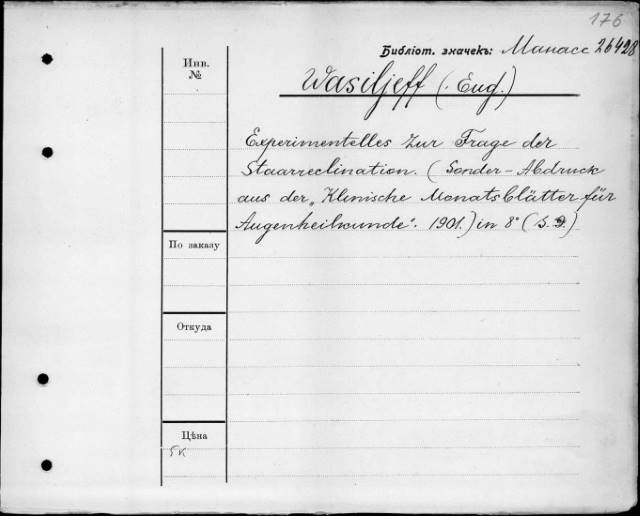 176
Библіот. значекъ: Манасс 26428
Инв.
№
Wasiljeff (Eug.)
Experimentelles zur Frage der
Staarreclination. (Sonder-Abdruck
aus der „Klinische Monatsblätter für
Augenheilkunde“. 1901.) in 8° (S. 9.)
По заказу
Откуда
Цѣна
5к